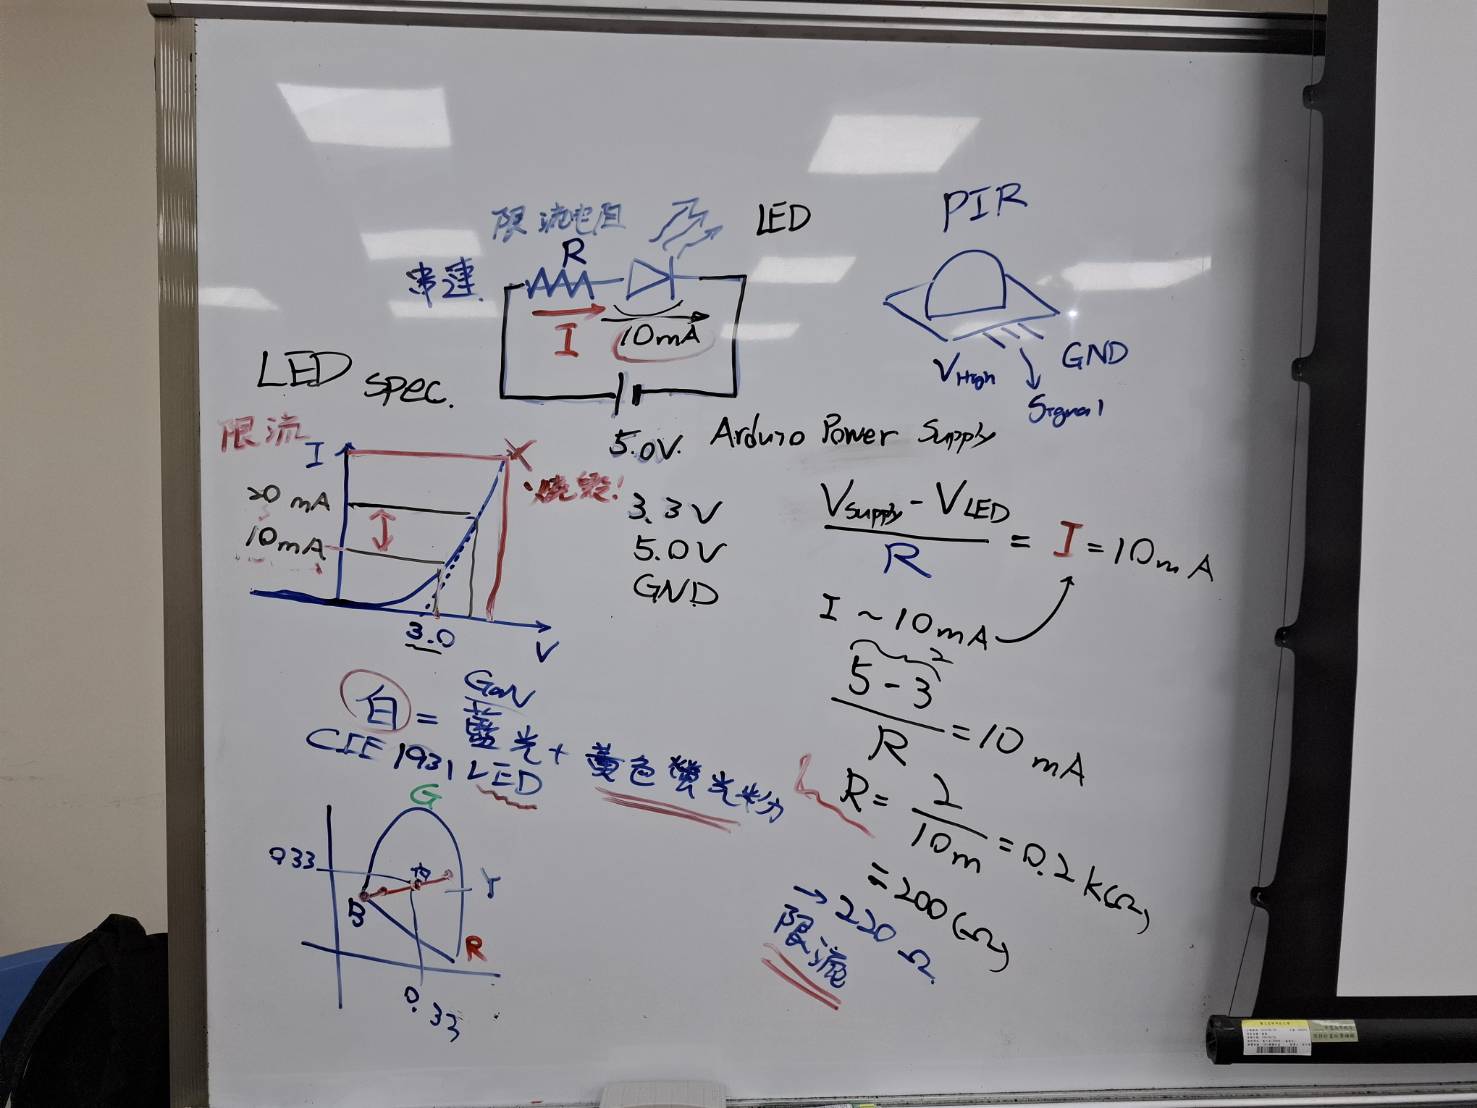 限流電阻
LED
串連
R
I
10mA
PIR
VHigh
GND
Signal
LED spec.
5.0V. Arduino Power Supply
3.3V
5.0V
GND
限流
I
20 mA
10mA
燒毀!
3.0
V
VSupply - VLED
R
= I = 10mA
I ~ 10mA
2
5 - 3
R
= 10 mA
R = 2
10m
= 0.2 k(Ω)
= 200(Ω)
→ 220Ω
限流
GaN
白 = 藍光 + 黃色螢光粉
CIE 1931 LED
G
0.33
B
Y
R
0.33